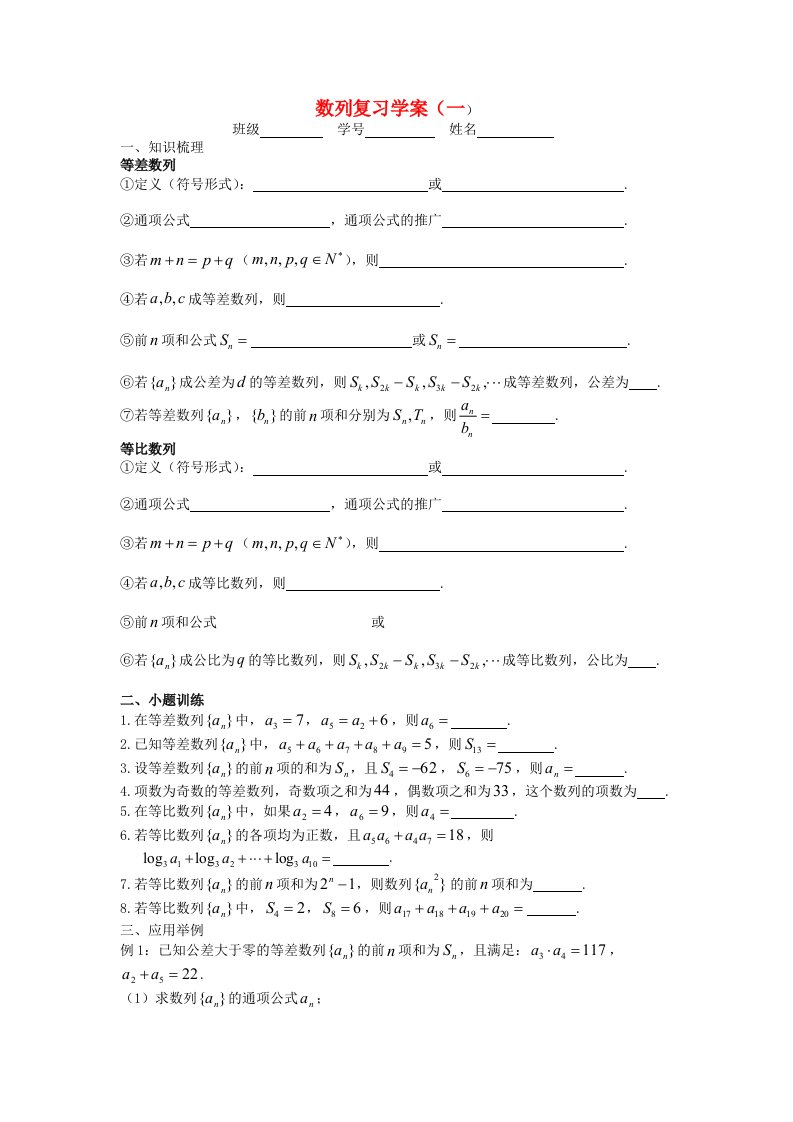 数列复习学案（一）
班级________ 学号________ 姓名________
一、知识梳理
等差数列
①定义（符号形式）：________或________.
②通项公式________，通项公式的推广________.
③若m+n=p+q（m,n,p,q∈N*），则________.
④若a,b,c成等差数列，则________.
⑤前n项和公式Sₙ=________或Sₙ=________.
⑥若{aₙ}成公差为d的等差数列，则Sₖ,S₂ₖ−Sₖ,S₃ₖ−S₂ₖ,⋯成等差数列，公差为____.
⑦若等差数列{aₙ}，{bₙ}的前n项和分别为Sₙ,Tₙ，则aₙ/bₙ=________.
等比数列
①定义（符号形式）：________或________.
②通项公式________，通项公式的推广________.
③若m+n=p+q（m,n,p,q∈N*），则________.
④若a,b,c成等比数列，则________.
⑤前n项和公式 或
⑥若{aₙ}成公比为q的等比数列，则Sₖ,S₂ₖ−Sₖ,S₃ₖ−S₂ₖ,⋯成等比数列，公比为____.
二、小题训练
1.在等差数列{aₙ}中，a₃=7，a₅=a₂+6，则a₆=________.
2.已知等差数列{aₙ}中，a₅+a₆+a₇+a₈+a₉=5，则S₁₃=________.
3.设等差数列{aₙ}的前n项的和为Sₙ，且S₄=−62，S₆=−75，则aₙ=______.
4.项数为奇数的等差数列，奇数项之和为44，偶数项之和为33，这个数列的项数为____.
5.在等比数列{aₙ}中，如果a₂=4，a₆=9，则a₄=________.
6.若等比数列{aₙ}的各项均为正数，且a₅a₆+a₄a₇=18，则
log₃a₁+log₃a₂+⋯+log₃a₁₀=________.
7.若等比数列{aₙ}的前n项和为2ⁿ−1，则数列{aₙ²}的前n项和为______.
8.若等比数列{aₙ}中，S₄=2，S₈=6，则a₁₇+a₁₈+a₁₉+a₂₀=______.
三、应用举例
例1：已知公差大于零的等差数列{aₙ}的前n项和为Sₙ，且满足：a₃·a₄=117，
a₂+a₅=22.
（1）求数列{aₙ}的通项公式aₙ；